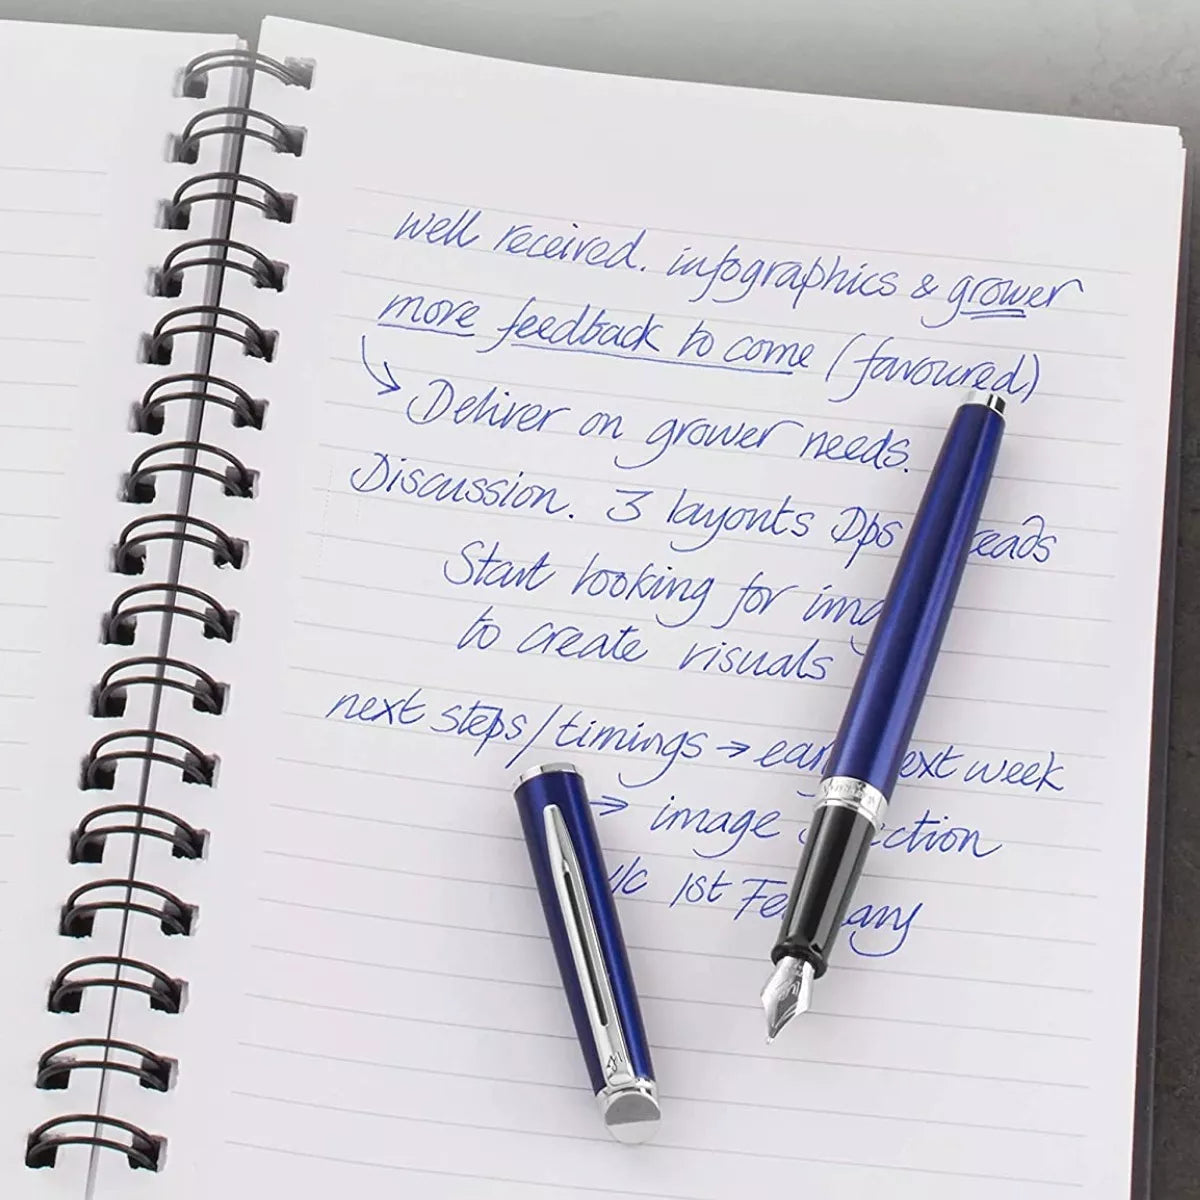 well received. infographics & grower
more feedback to come (favoured)
→ Deliver on grower needs.
Discussion. 3 layouts Dps
Start looking for
to create visuals
next steps/timings → next week
→ image
1st February